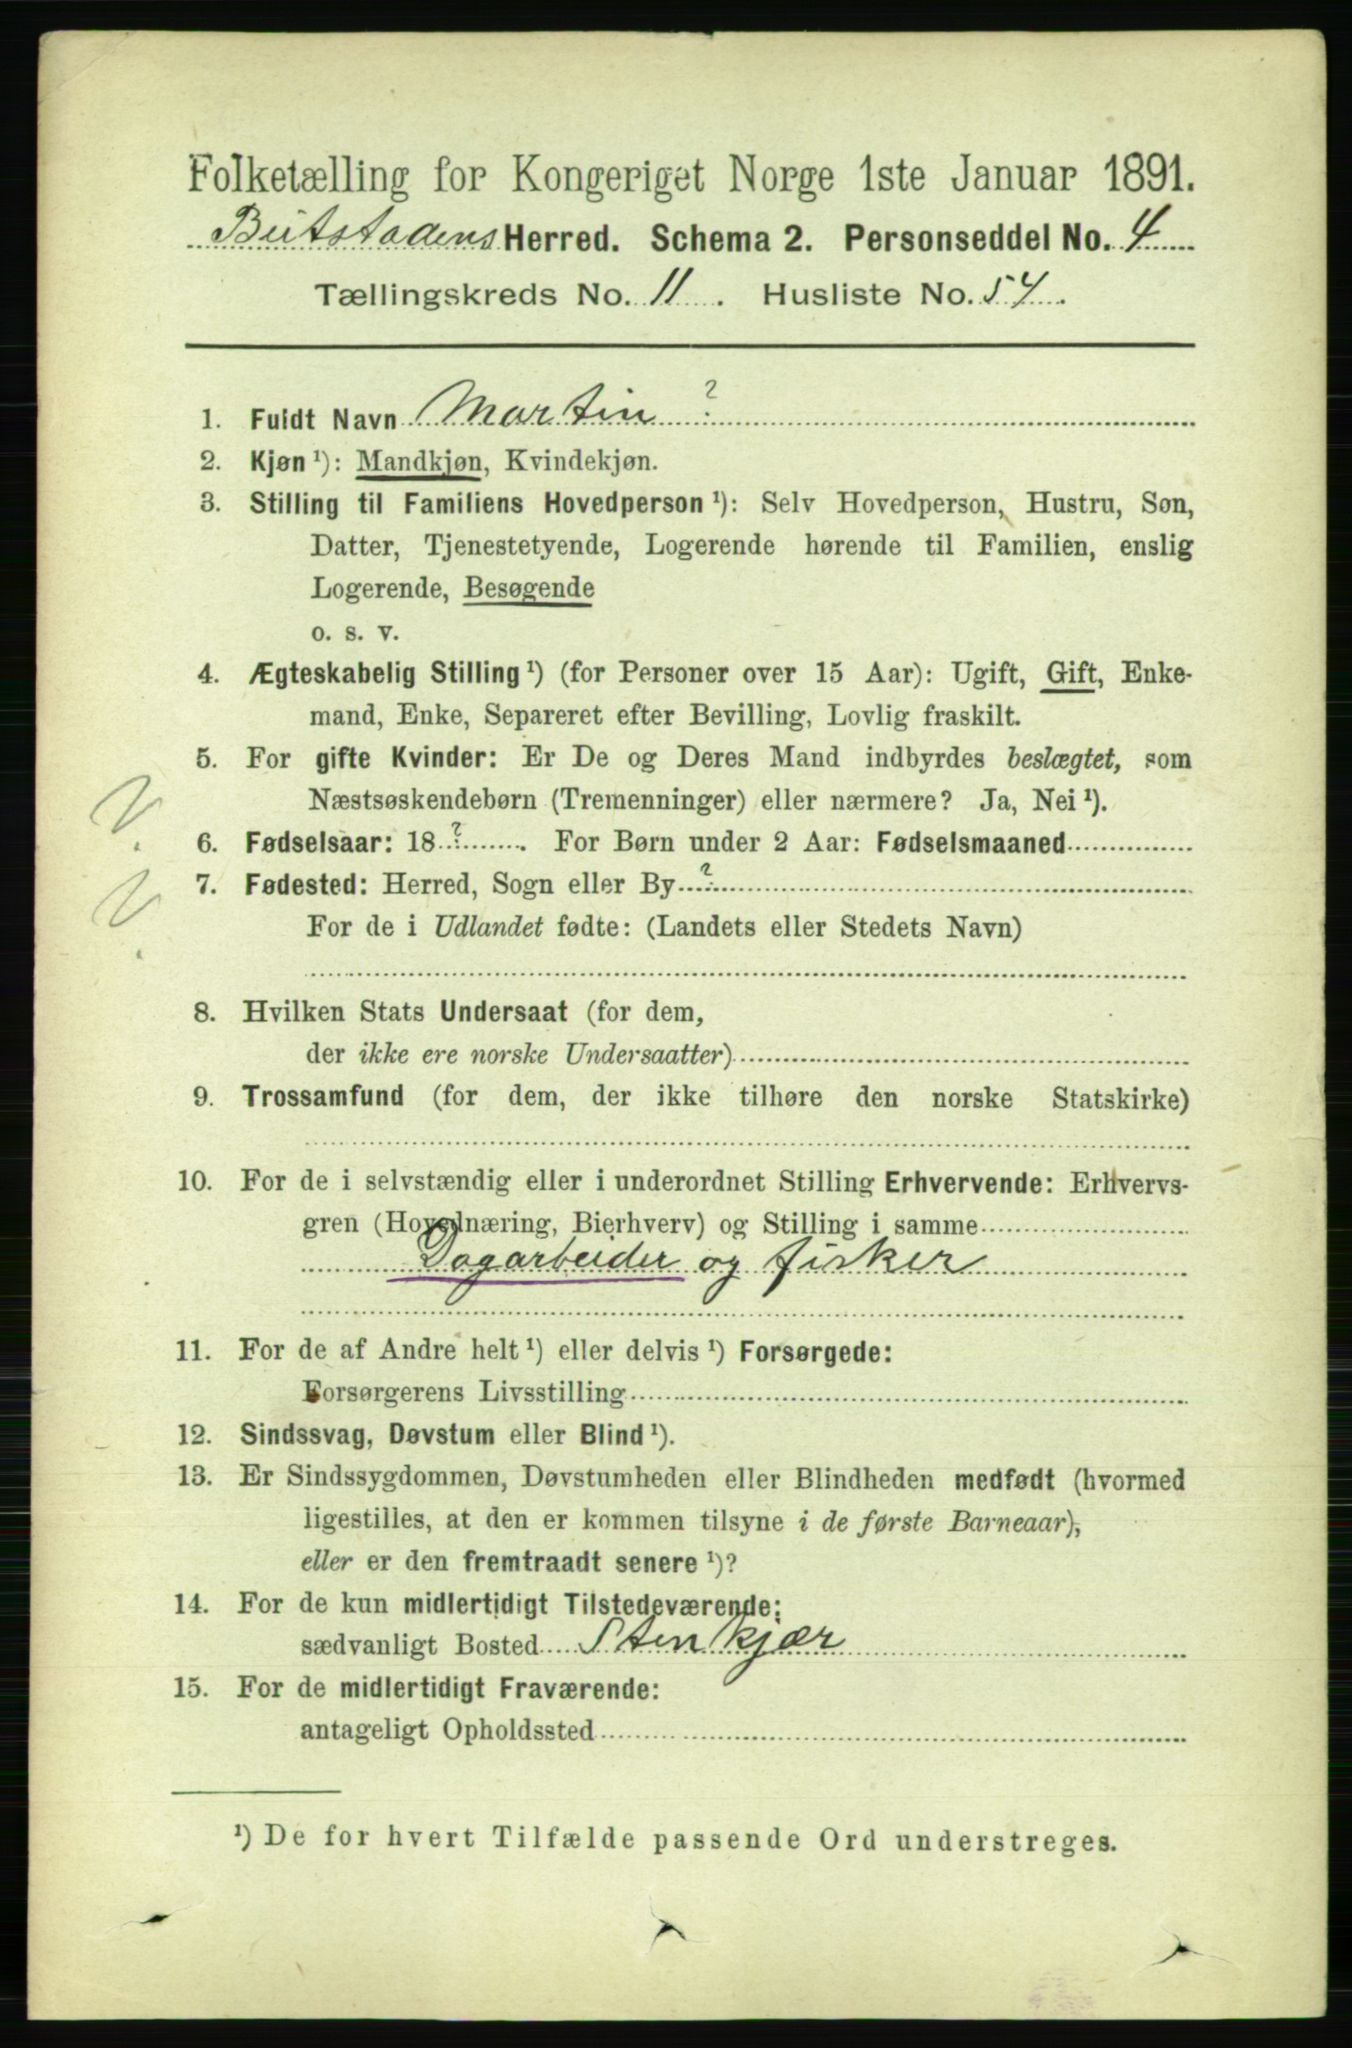 Folketælling for Kongeriget Norge 1ste Januar 1891.
Beitstadens Herred. Schema 2. Personseddel No. 4
Tællingskreds No. 11. Husliste No. 54.
1. Fuldt Navn Martin ?
2. Kjøn ¹): Mandkjøn, Kvindekjøn.
3. Stilling til Familiens Hovedperson ¹): Selv Hovedperson, Hustru, Søn,
Datter, Tjenestetyende, Logerende hørende til Familien, enslig
Logerende, Besøgende
o. s. v.
4. Ægteskabelig Stilling ¹) (for Personer over 15 Aar): Ugift, Gift, Enke-
mand, Enke, Separeret efter Bevilling, Lovlig fraskilt.
5. For gifte Kvinder: Er De og Deres Mand indbyrdes beslægtet, som
Næstsøskendebørn (Tremenninger) eller nærmere? Ja, Nei ¹).
6. Fødselsaar: 18 ? . For Børn under 2 Aar: Fødselsmaaned
7. Fødested: Herred, Sogn eller By ?
For de i Udlandet fødte: (Landets eller Stedets Navn)
8. Hvilken Stats Undersaat (for dem,
der ikke ere norske Undersaatter)
9. Trossamfund (for dem, der ikke tilhøre den norske Statskirke)
10. For de i selvstændig eller i underordnet Stilling Erhvervende: Erhvervs-
gren (Hovednæring, Bierhverv) og Stilling i samme
Dagarbeider og fisker
11. For de af Andre helt ¹) eller delvis ¹) Forsørgede:
Forsørgerens Livsstilling
12. Sindssvag, Døvstum eller Blind ¹).
13. Er Sindssygdommen, Døvstumheden eller Blindheden medfødt (hvormed
ligestilles, at den er kommen tilsyne i de første Barneaar),
eller er den fremtraadt senere ¹)?
14. For de kun midlertidigt Tilstedeværende:
sædvanligt Bosted Stenkjær
15. For de midlertidigt Fraværende:
antageligt Opholdssted
¹) De for hvert Tilfælde passende Ord understreges.